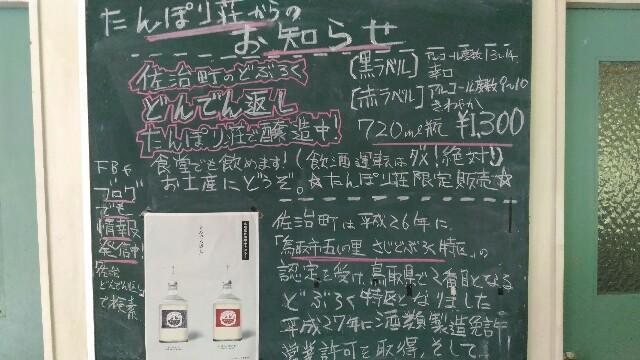 たんぽり荘からの
お知らせ
佐治町のどぶろく
どんでん返し
たんぽり荘で醸造中!
食堂でも飲めます!(飲酒運転はダメ!絶対!)
お土産にどうぞ。☆たんぽり荘限定販売☆
[黒ラベル] アルコール度数13〜14
辛口
[赤ラベル] アルコール度数9〜10
さわやか
720ml瓶 ¥1,300
FBや
ブログ
でも
情報
発信中!
佐治
どんでん返し
で検索
佐治町は平成26年に
「鳥取市五しの里 さじどぶろく特区」の
認定を受け、鳥取県で2番目となる
どぶろく特区となりました
平成27年に酒類製造免許
営業許可を取得、そして